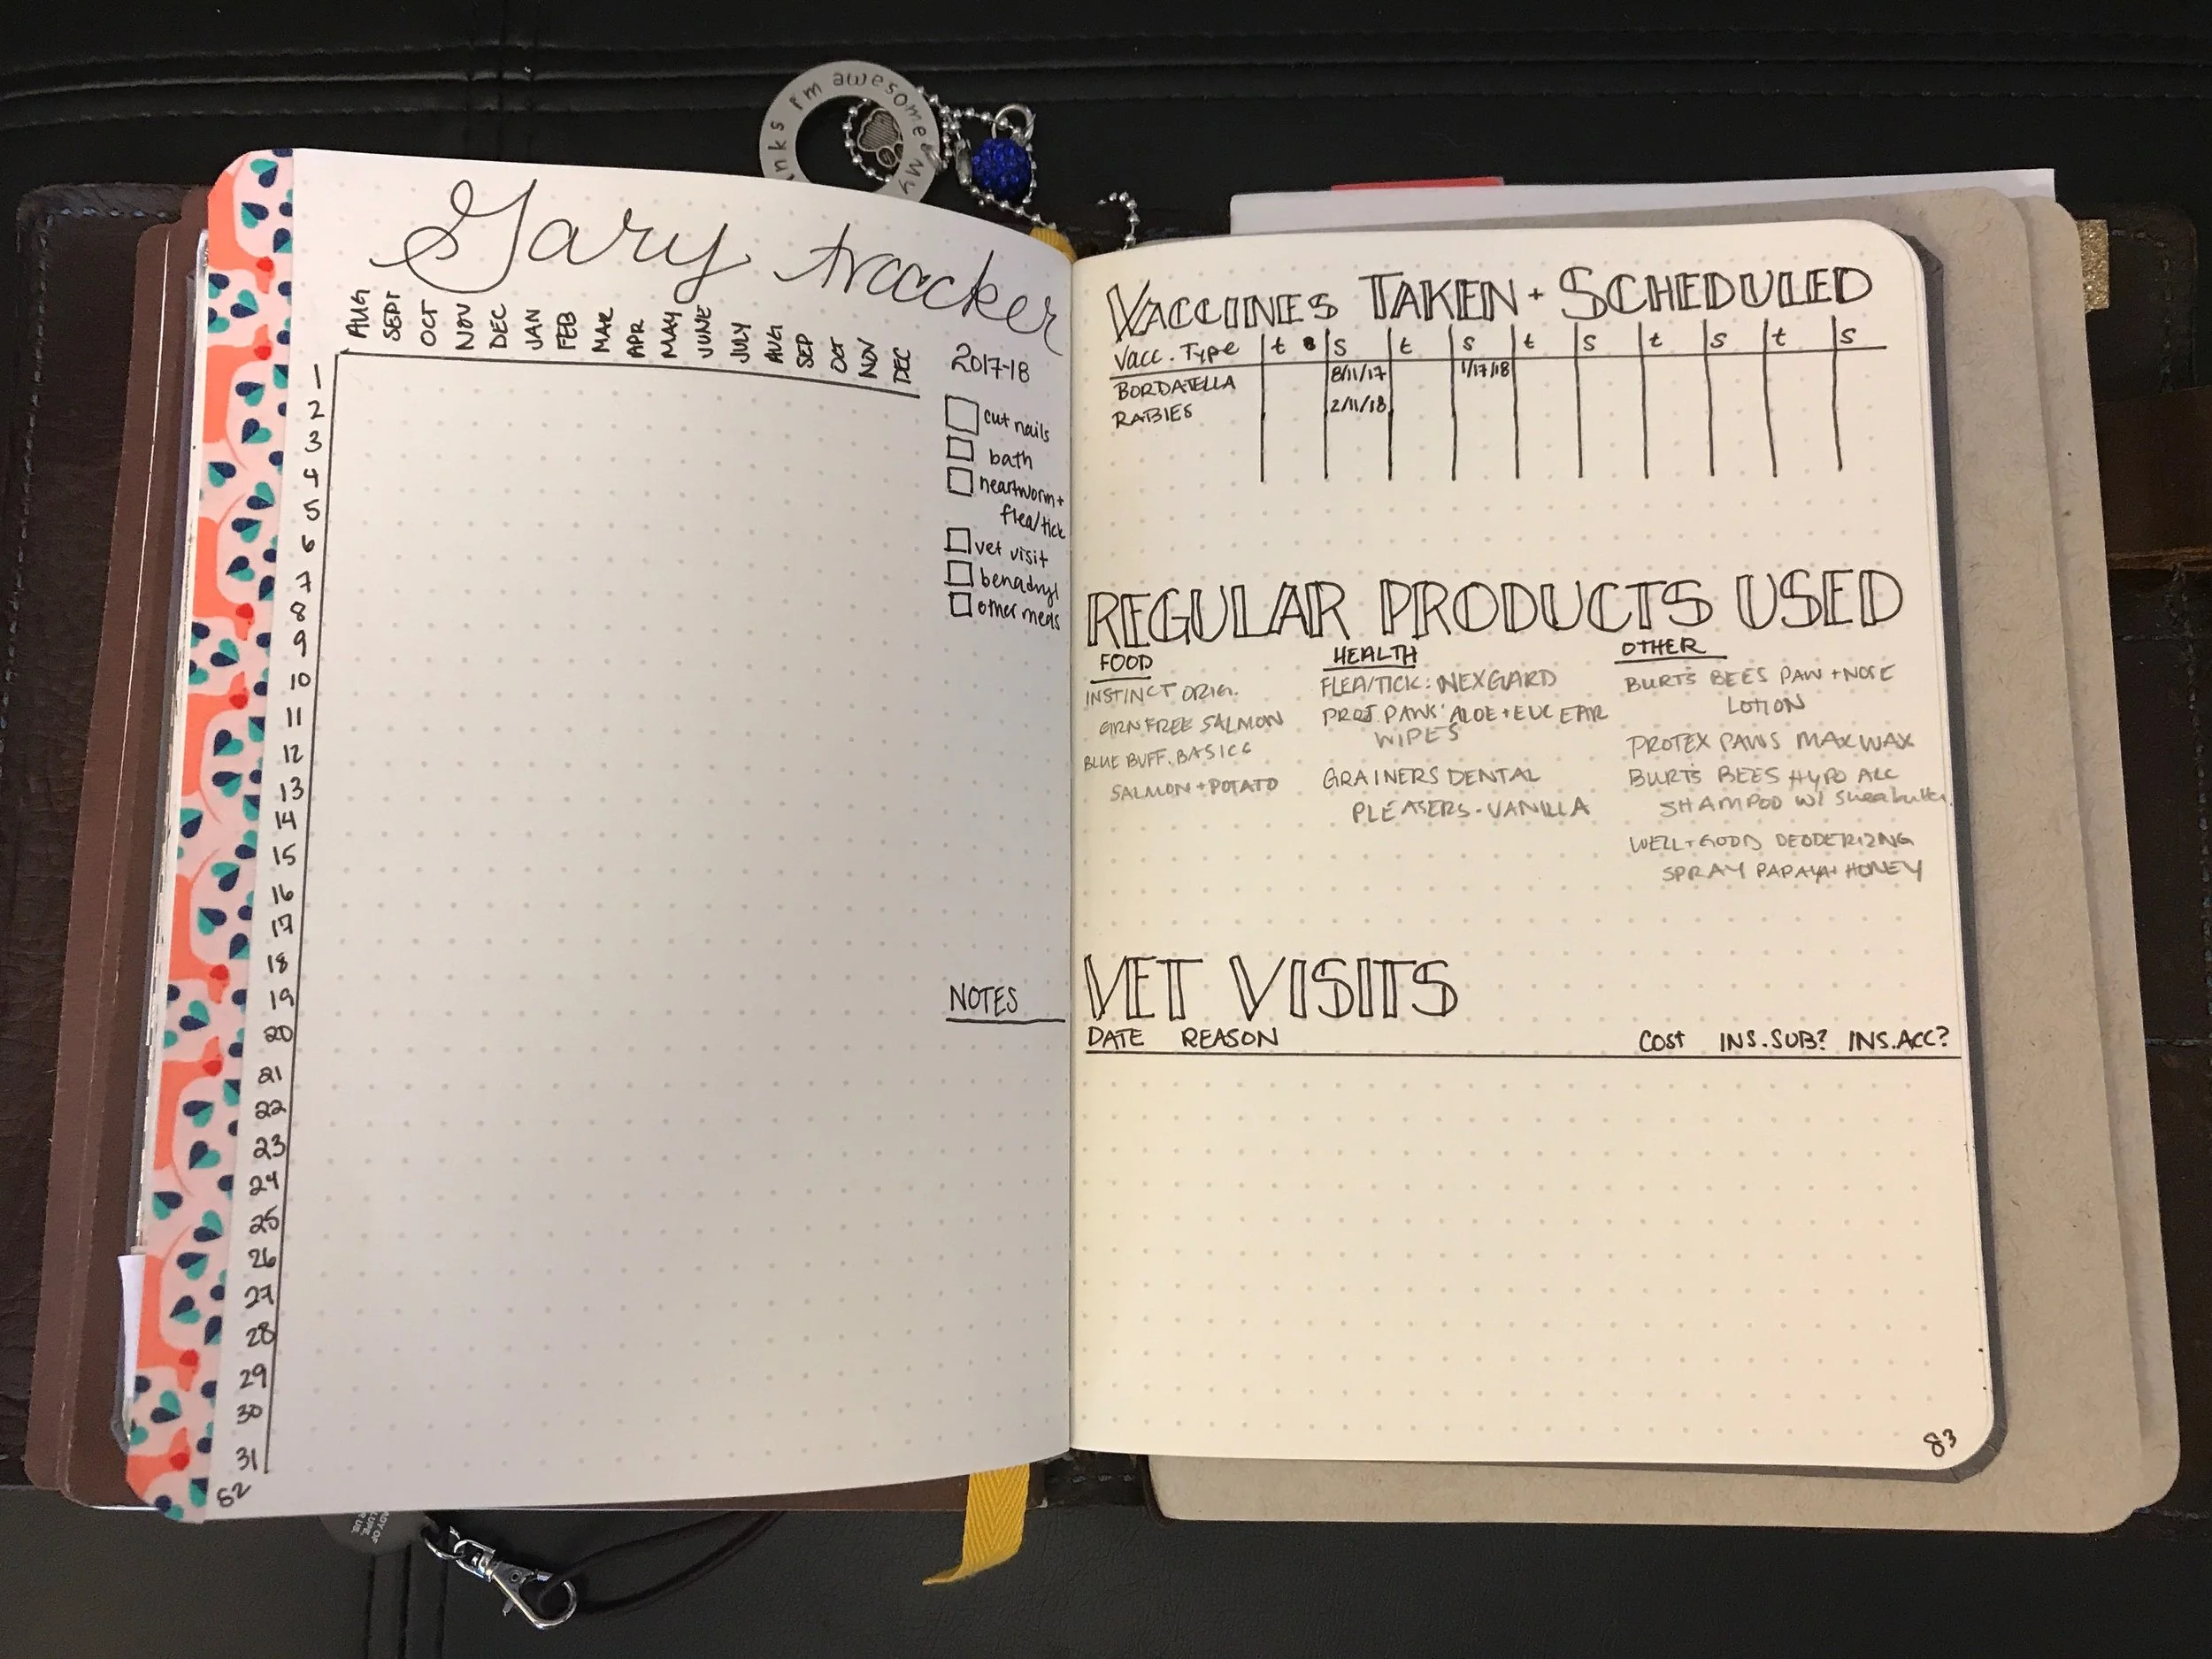 I'm awesome My
Gary tracker
AUG SEPT OCT NOV DEC JAN FEB MAR APR MAY JUNE JULY AUG SEP OCT NOV DEC
2017-18
cut nails
bath
heartworm +
flea/tick
vet visit
benadryl
other meds
1
2
3
4
5
6
7
8
9
10
11
12
13
14
15
16
17
18
19
20
21
22
23
24
25
26
27
28
29
30
31
NOTES
82
VACCINES TAKEN + SCHEDULED
Vacc. Type t s t s t s t s t s
BORDATELLA 8/11/17 1/17/18
RABIES 2/11/18
REGULAR PRODUCTS USED
FOOD
INSTINCT ORIG.
GRN FREE SALMON
BLUE BUFF. BASICS
SALMON + POTATO
HEALTH
FLEA/TICK: NEXGARD
PROT. PAWS ALOE + EUC EAR
WIPES
GRAINERS DENTAL
PLEASERS - VANILLA
OTHER
BURTS BEES PAW + NOSE
LOTION
PROTEX PAWS MAX WAX
BURTS BEES HYPO ALL
SHAMPOO W/ Sheabutter
WELL + GOOD DEODERIZING
SPRAY PAPAYA + HONEY
VET VISITS
DATE REASON COST INS. SUB? INS. ACC?
83